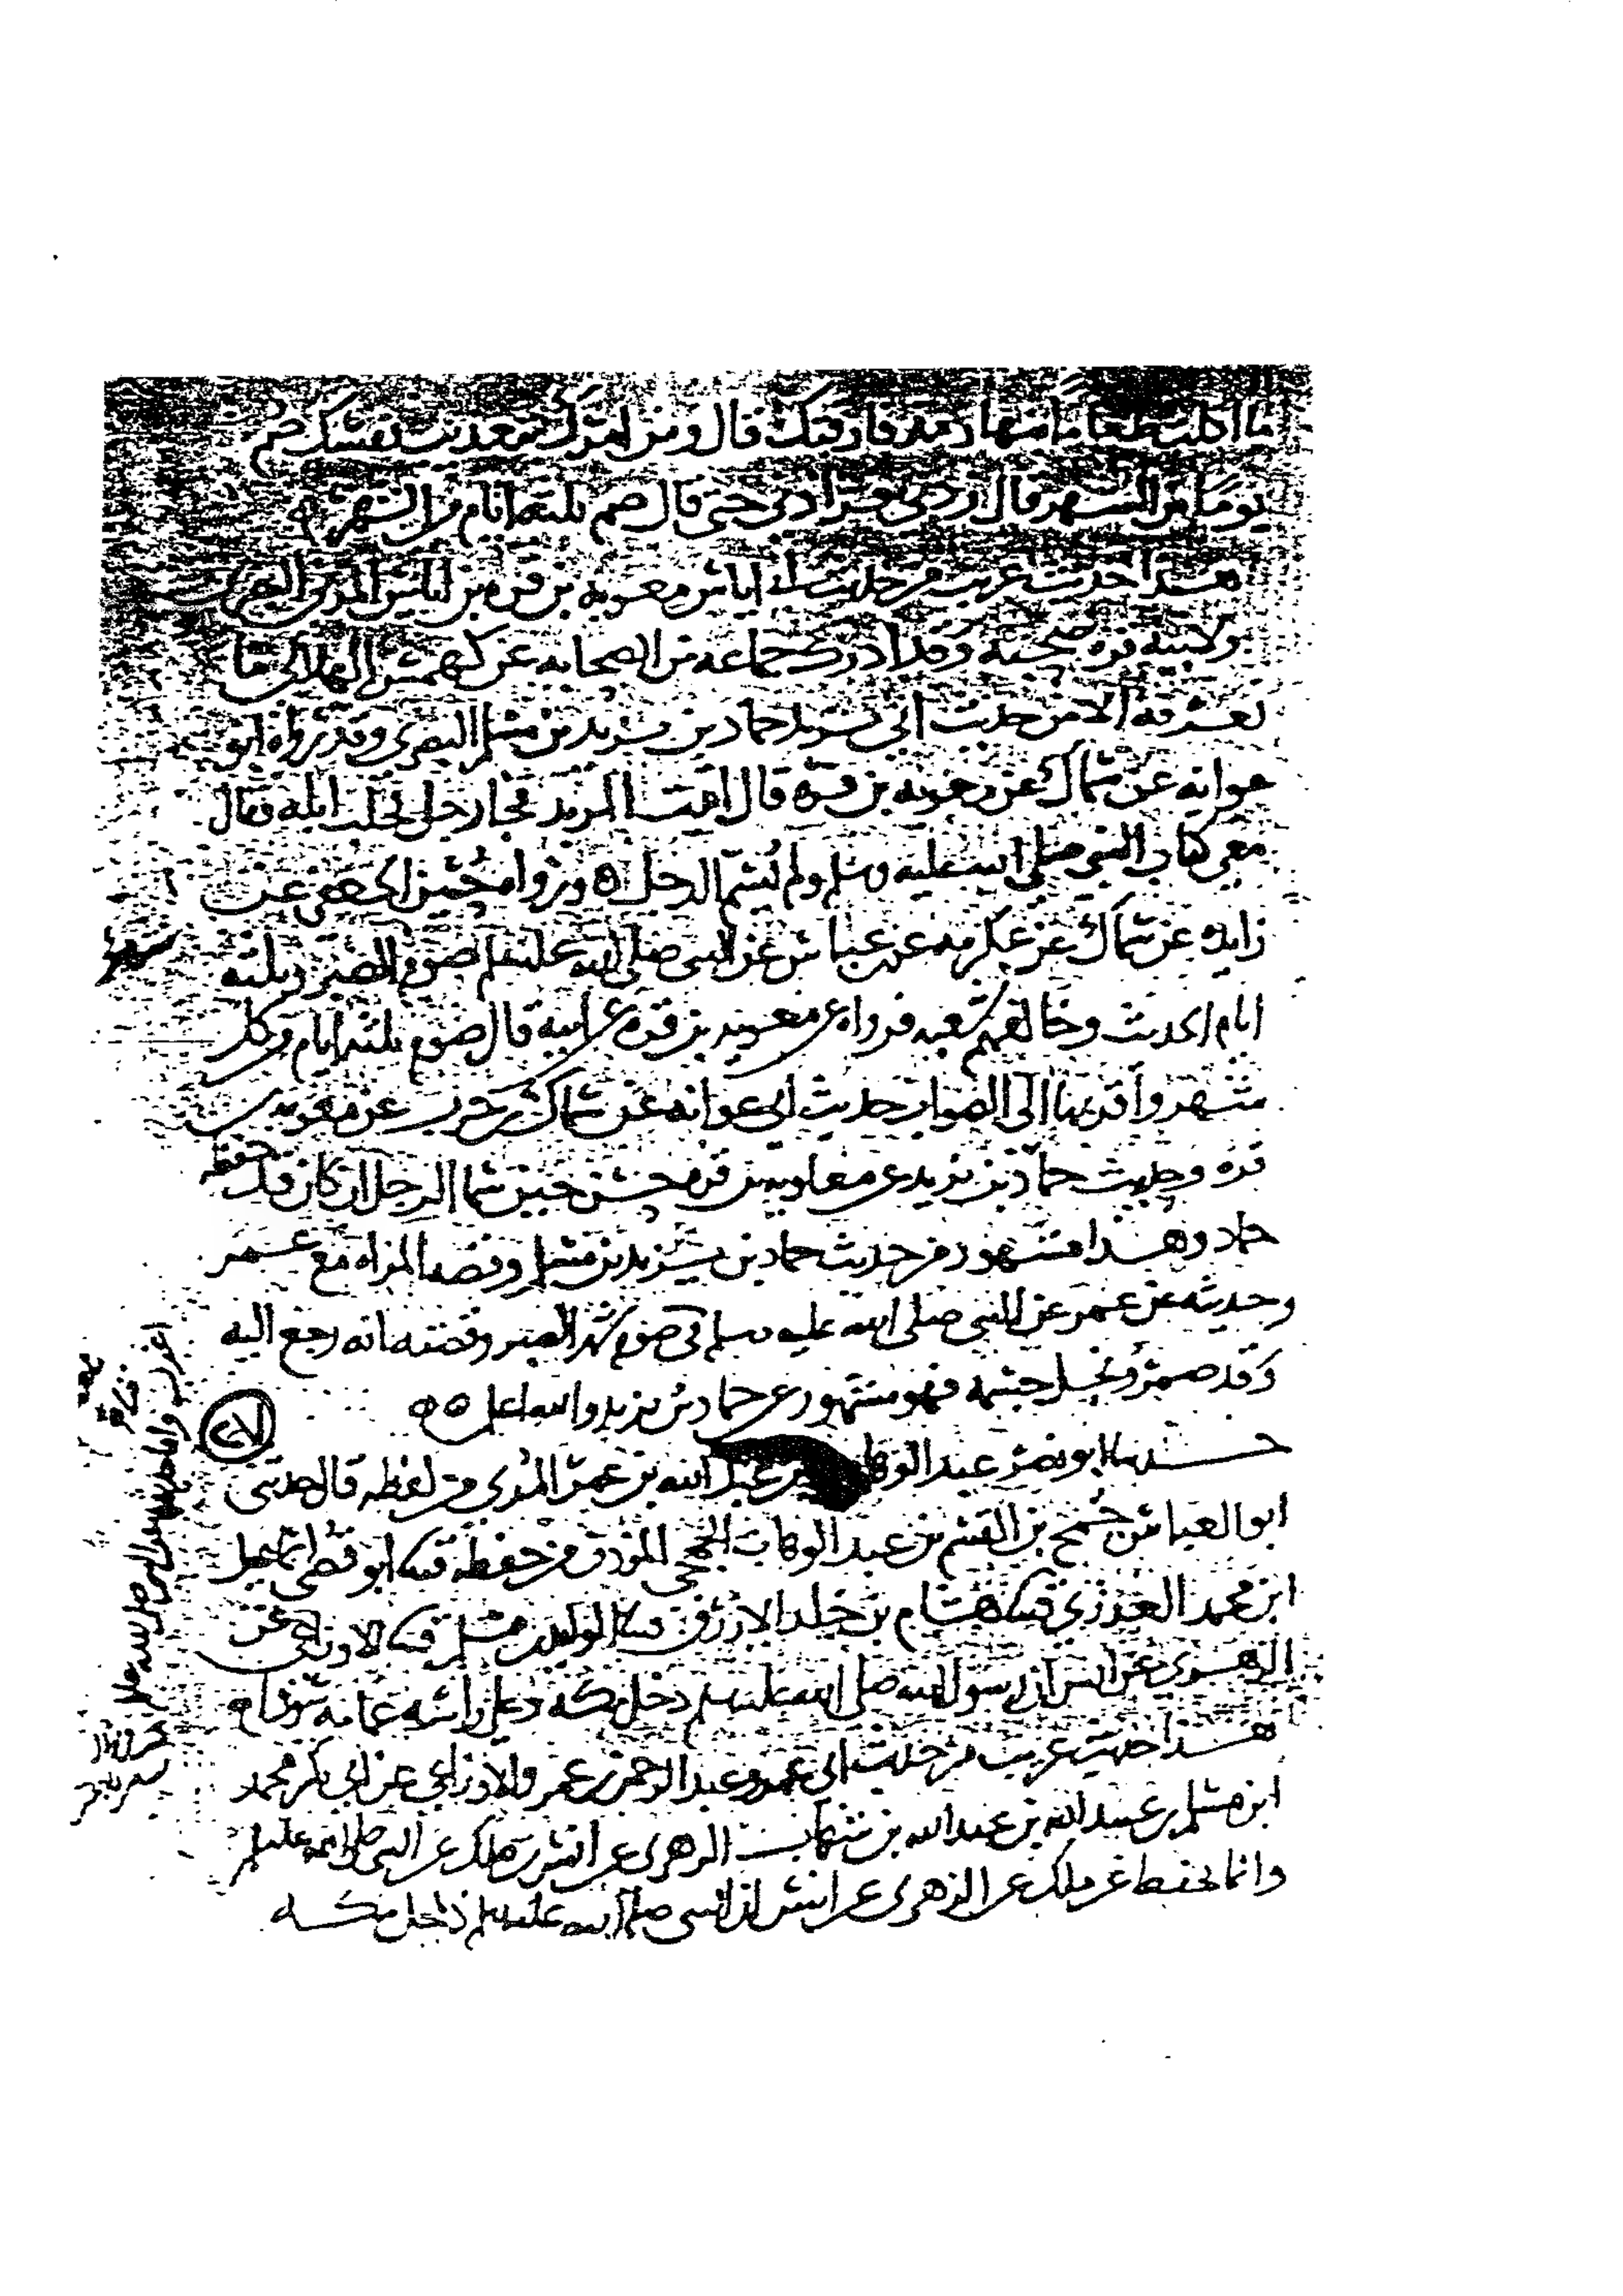 ما اكلت طعاما نهارا منذ فارقتك قال ومن امرك بتعذيب نفسك صم
يوما من الشهر قال زدني فزادني حتى قال صم ثلثة ايام من الشهر
هذا حديث غريب من حديث ابي اياس معوية بن قرة بن اياس المزني البصري
ولابيه قرة صحبة وقد ادرك جماعة من الصحابة عن كهمس الهلالي ما
نعرفه الا من حديث ابي يزيد حماد بن يزيد بن مسلم البصري وقد رواه ابو
عوانة عن سماك عن معوية بن قرة قال اتيت المربد فجا رجل ابله فقال
معي كتاب النبي صلى الله عليه وسلم ولم يسم الرجل ورواه حسين الجعفي عن
زايدة عن سماك عن عكرمة عن عباس عن النبي صلى الله عليه وسلم صوم الصبر وثلثة
ايام الحديث وخالفهم شعبة فرواه عن معوية بن قرة عن ابيه قال صوم ثلثة ايام من كل
شهر واقربها الى الصواب حديث ابي عوانة عن سماك بن حرب عن معوية بن
قرة وحديث حماد بن يزيد عن معاوية بن قرة حسن حين سما الرجل ان كان قد حفظه
حماد وهذا مشهور من حديث حماد بن يزيد بن مسلم وقصة المراة مع عمر
وحديثه عن عمر عن النبي صلى الله عليه وسلم في صوم شهر الصبر وقصته انه رجع اليه
وقد ضمر ونحل جسمه فهو مشهور عن حماد بن يزيد والله اعلم
حدثنا ابو نصر عبد الوهاب بن عبد الله بن عمر المري من لفظه قال حدثني
ابو العباس جمح بن القسم بن عبد الوهاب الجمحي المؤذن من حفظه ثنا ابو قصي اسمعيل
ابن محمد العذري ثنا هشام بن خلد الازرق ثنا الوليد بن مسلم ثنا الاوزاعي عن
الزهري عن انس ان رسول الله صلى الله عليه وسلم دخل مكة وعلى راسه عمامة سوداء
هذا حديث غريب من حديث ابي عمرو عبد الرحمن بن عمرو الاوزاعي عن ابي بكر محمد
ابن مسلم بن عبيد الله بن عبد الله بن شهاب الزهري عن انس بن ملك عن النبي صلى الله عليه وسلم
وانما يحفظ عن ملك عن الزهري عن انس ان النبي صلى الله عليه وسلم دخل مكة